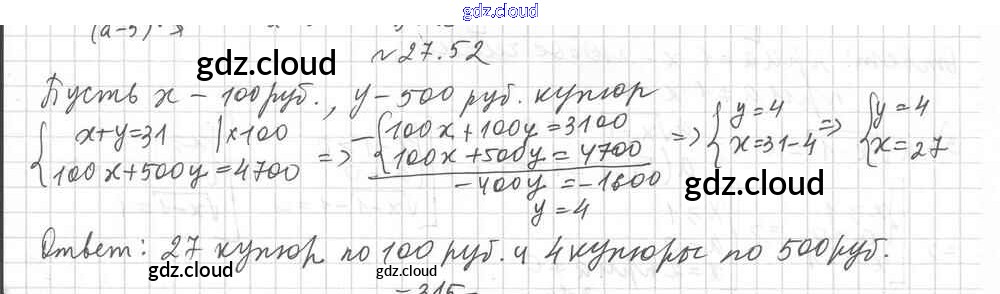 gdz.cloud
(a-5)
№27.52
gdz.cloud
Пусть x - 100 руб., y - 500 руб. купюр
{ x+y=31 |×100
100x+500y=4700 => -{ 100x+100y=3100
100x+500y=4700 => { y=4
x=31-4 => { y=4
x=27
-400y=-1600
y=4
gdz.cloud
Ответ: 27 купюр по 100 руб. и 4 купюры по 500 руб.
gdz.cloud
gdz.cloud
-315-